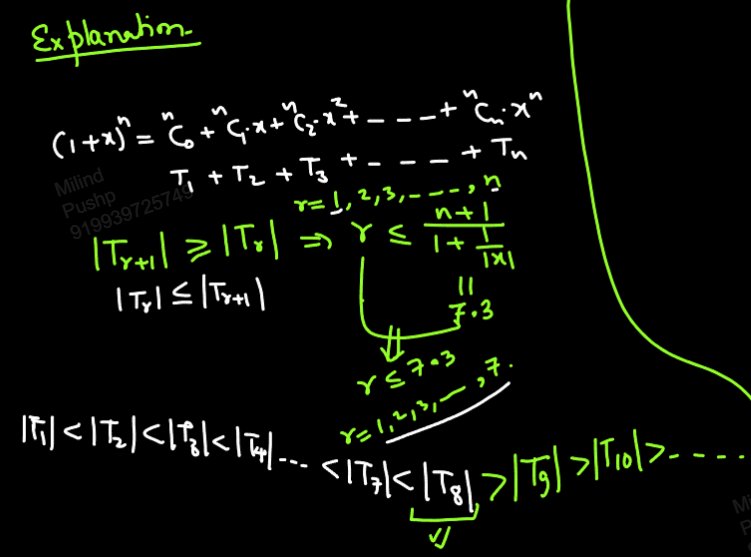 Explanation
(1+x)ⁿ = ⁿC₀ + ⁿC₁.x + ⁿC₂.x² + ---- + ⁿCₙ.xⁿ
T₁ + T₂ + T₃ + - - - + Tₙ
Milind
Pushp
919939725749
r = 1, 2, 3, - - - -, n
|Tᵣ₊₁| ≥ |Tᵣ| ⇒ r ≤ (n+1)/(1 + 1/|x|)
|Tᵣ| ≤ |Tᵣ₊₁|
||
7.3
⇓
r ≤ 7.3
r = 1, 2, 3, - - -, 7.
|T₁| < |T₂| < |T₃| < |T₄| ... < |T₇| < |T₈| > |T₉| > |T₁₀| > - - - - -
Mi
P